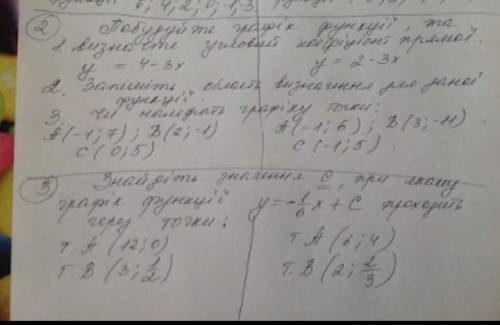 6; 4; 2; 0; -1; -3
② Побудуйте графік функції, та
1. визначте кутовий коефіцієнт прямої.
y = 4-3x y = 2-3x
2. Запишіть область визначення для даної
функції.
3. Чи належать графіку точки:
A(-1; 7); B(2; -1) A(-1; 6); B(3; -11)
C(0; 5) C(-1; 5)
③ Знайдіть значення C, при якому
графік функції y = -1/6 x + C проходить
через точки:
т. A (12; 0) т. A (6; 4)
т. B (3; 1/2) т. B (2; 2/3)